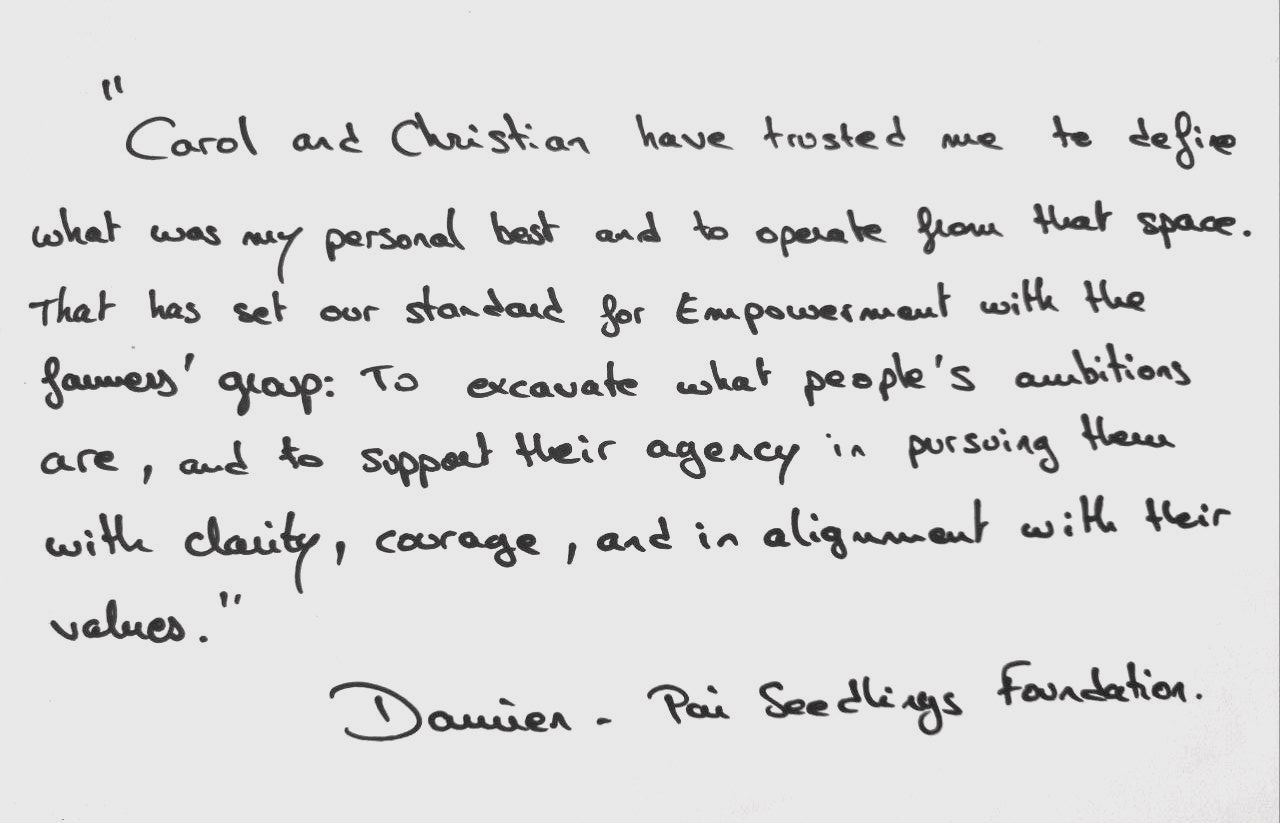 "Carol and Christian have trusted me to define
what was my personal best and to operate from that space.
That has set our standard for Empowerment with the
farmers' group: To excavate what people's ambitions
are, and to support their agency in pursuing them
with clarity, courage, and in alignment with their
values."
Damien - Pai Seedlings Foundation.